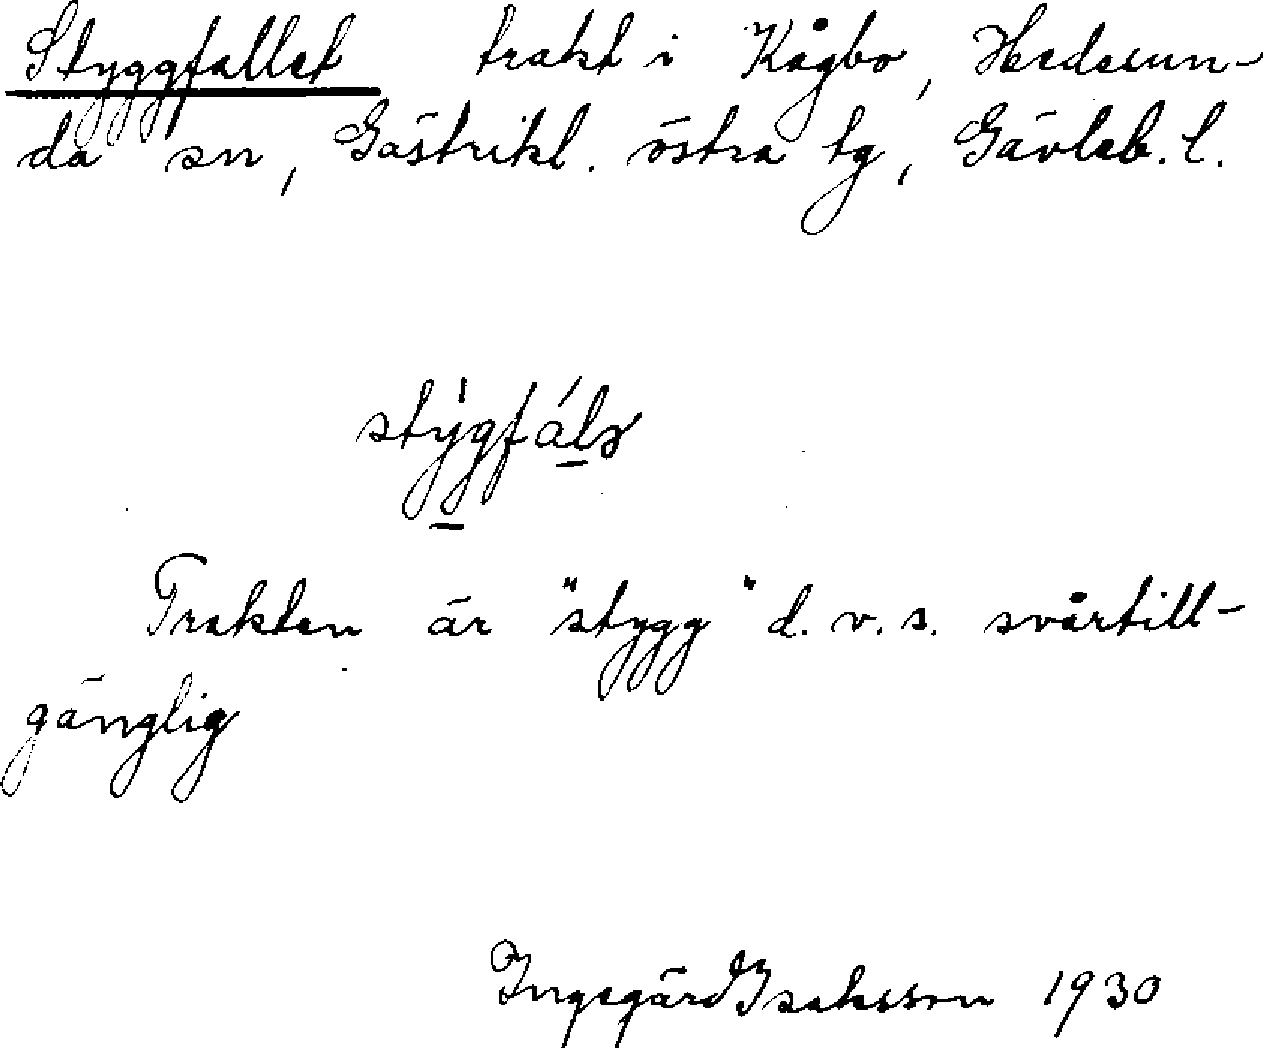 Styggfallet trakt i Kågbo, Hedesun-
da sn, Gästrikl. östra tg, Gävleb. l.
Trakten är "stygg" d. v. s. svårtill-
gänglig
Ingegärd Isaksson 1930